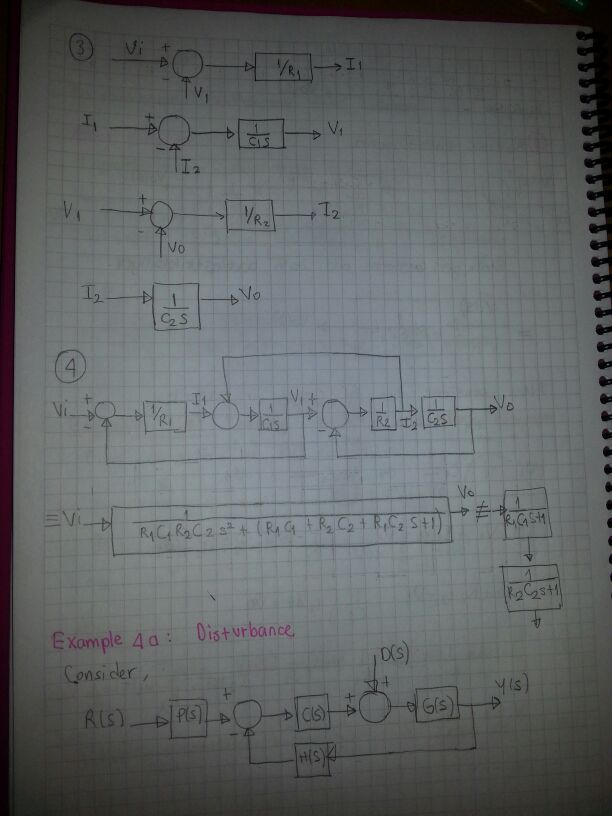 ③ Vi + - V1 1/R1 I1
I1 + - I2 1/C1S V1
V1 + - V0 1/R2 I2
I2 1/C2S V0
④
Vi + - 1/R1 I1 1/C1S V1 + - 1/R2 I2 1/C2S V0
≡ Vi 1/R1C1R2C2S² + (R1C1 + R2C2 + R1C2S+1) V0 ≢ 1/R1C1S+1
1/R2C2S+1
Example 4a: Disturbance
Consider,
D(S)
R(S) P(S) + - C(S) + + G(S) Y(S)
H(S)